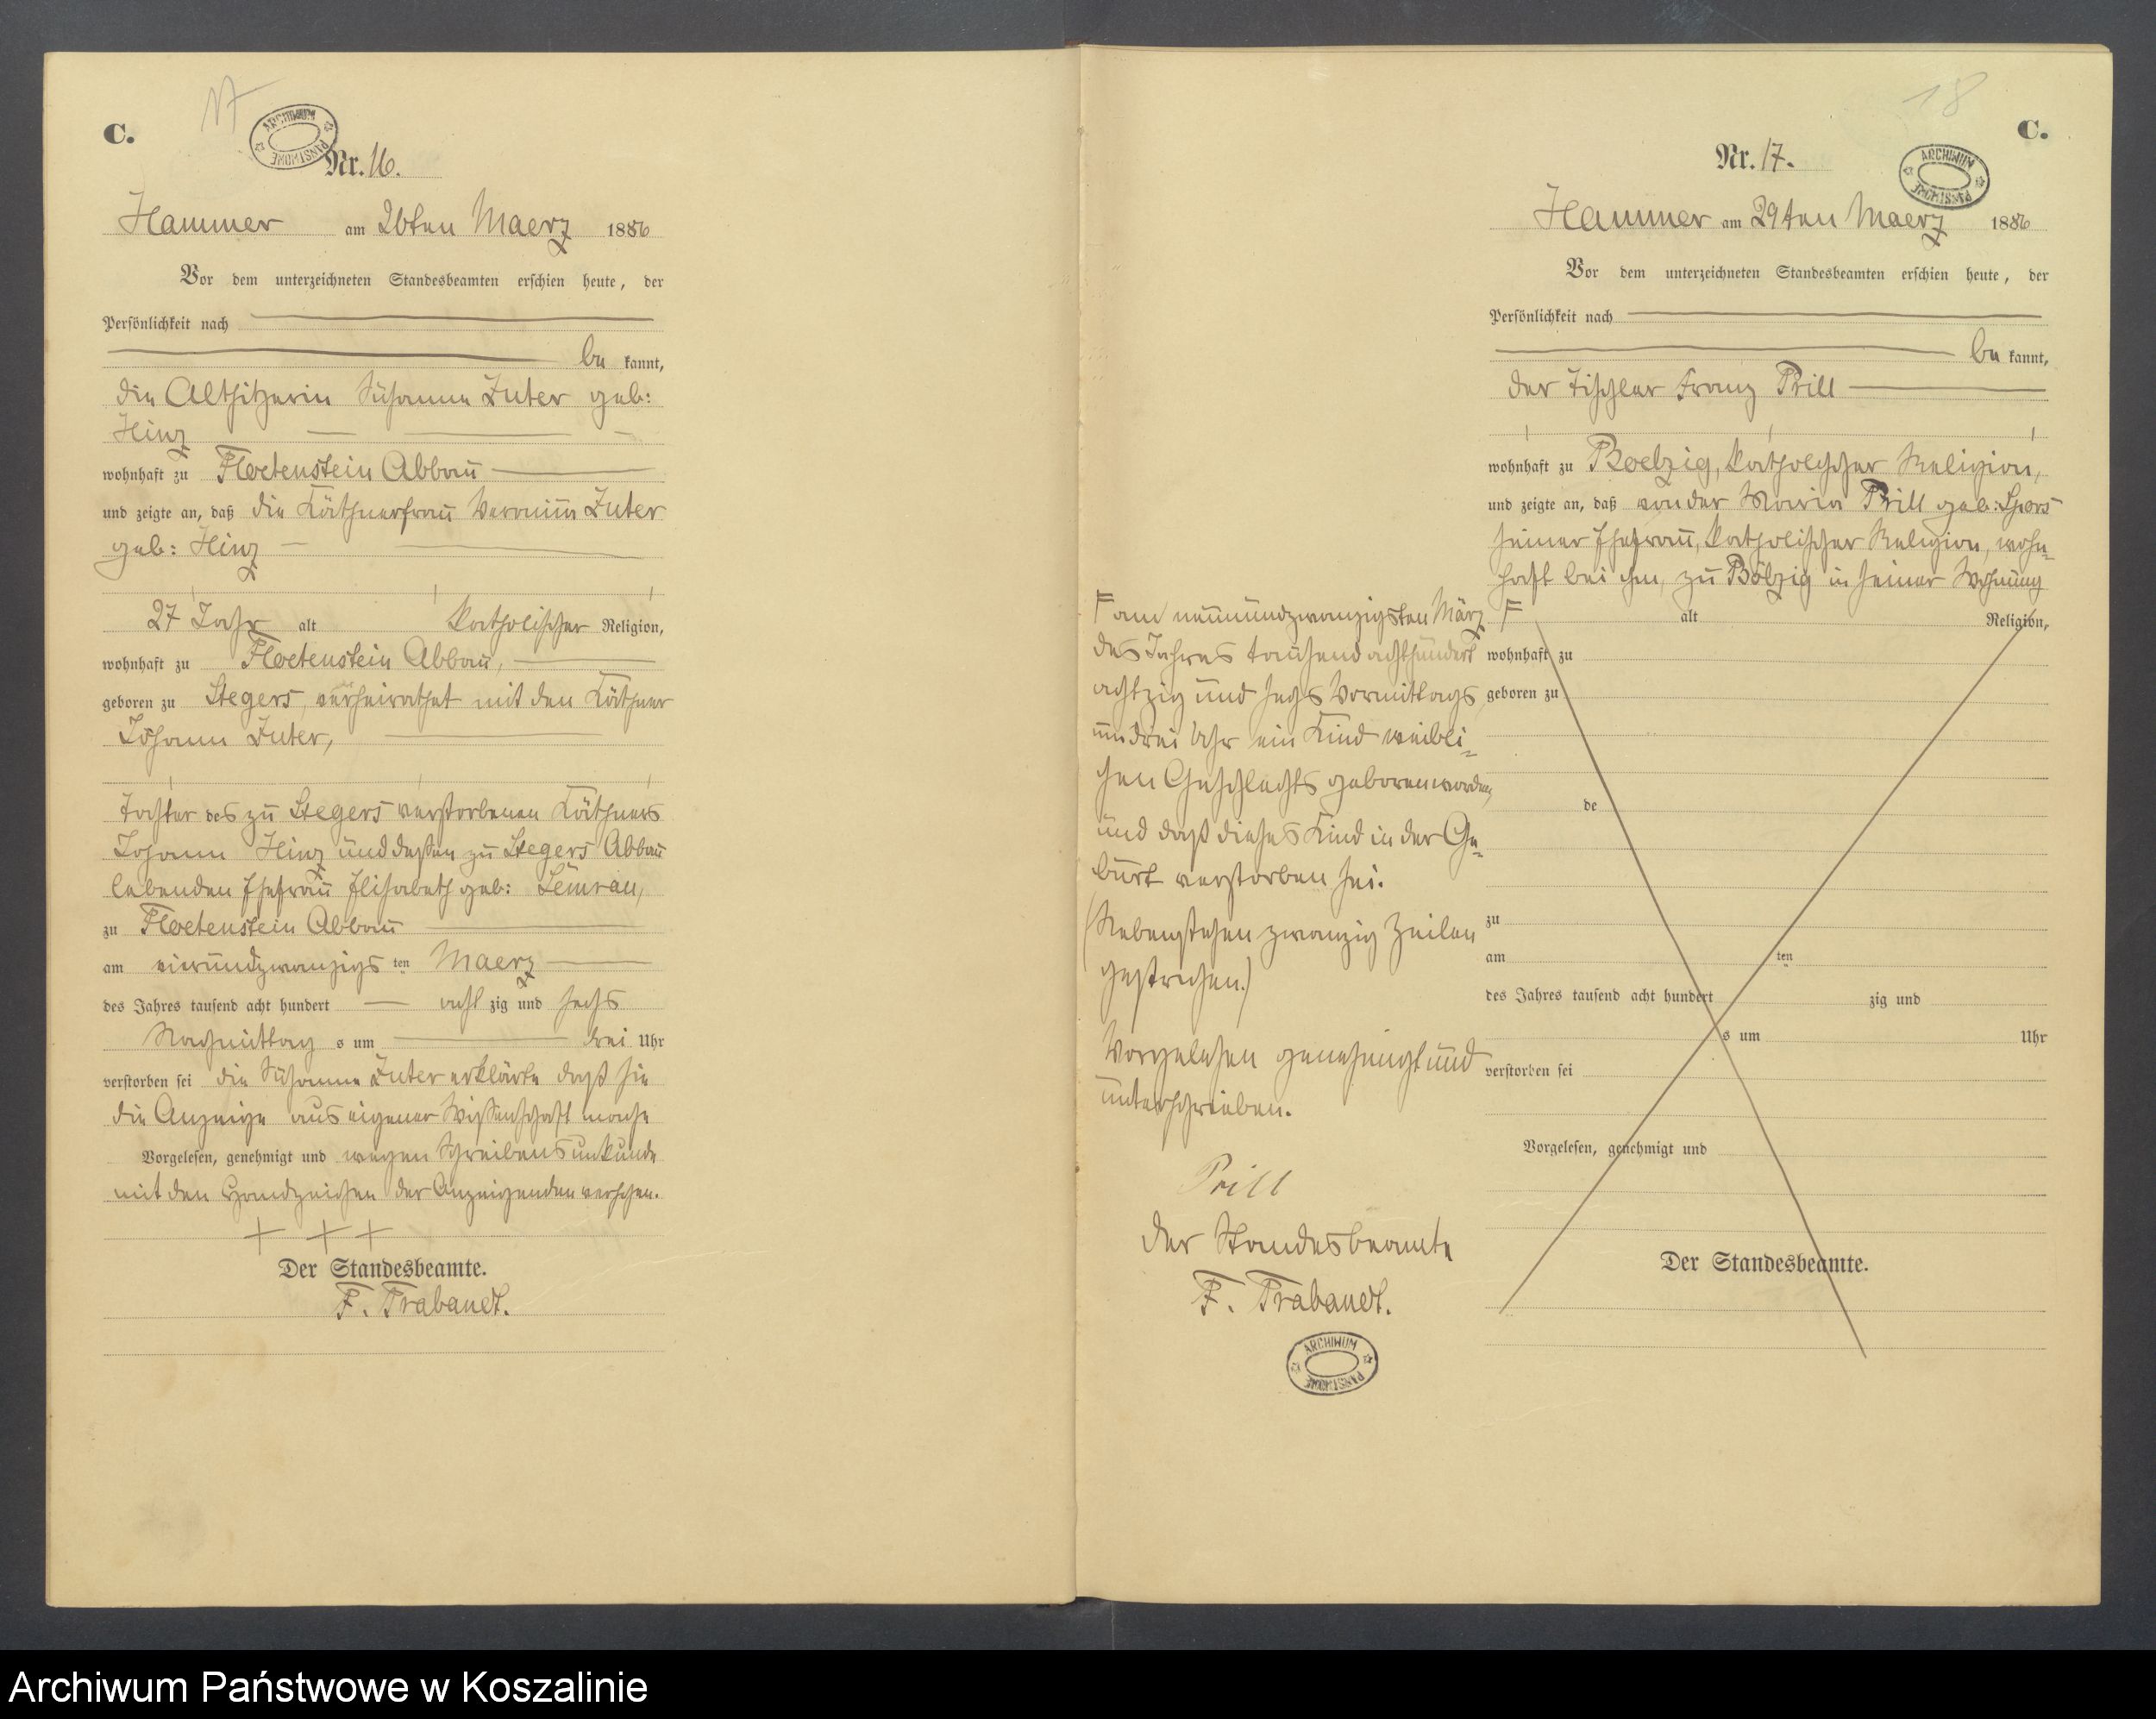 17
C.
ARCHIWUM PAŃSTWOWE
Nr. 16.
Hammer am 26ten Maerz 1886
Vor dem unterzeichneten Standesbeamten erschien heute, der
Persönlichkeit nach
be kannt,
die Altsitzerin Susanna Zuter geb:
Hinz
wohnhaft zu Floetenstein Abbau
und zeigte an, daß die Käthnerfrau Veronika Zuter
geb: Hinz
27 Jahr alt katholischer Religion,
wohnhaft zu Floetenstein Abbau,
geboren zu Stegers, verheirathet mit den Käthner
Johann Zuter,
Tochter des zu Stegers verstorbenen Käthners
Johann Hinz und dessen zu Stegers Abbau
lebenden Ehefrau Elisabeth geb:
zu Floetenstein Abbau
am vierundzwanzigs ten Maerz
des Jahres tausend acht hundert acht zig und sechs
Nachmittag s um drei Uhr
verstorben sei die Susanna Zuter erklärte daß sie
die Anzeige aus eigener Wissenschaft mache
Vorgelesen, genehmigt und wegen Schreibensunkunde
mit den Handzeichen der Anzeigenden versehen.
+ + +
Der Standesbeamte.
F. Trabandt.
18
C.
Nr. 17.
ARCHIWUM PAŃSTWOWE
Hammer am 29ten Maerz 1886
Vor dem unterzeichneten Standesbeamten erschien heute, der
Persönlichkeit nach
be kannt,
der Tischler Franz Prill
wohnhaft zu Boelzig, katholischer Religion,
und zeigte an, daß von der Maria Prill geb: Spors
seiner Ehefrau, katholischer Religion, wohn=
haft bei ihm, zu Bölzig in seiner Wohnung
F alt Religion,
wohnhaft zu
geboren zu
de
zu
am ten
des Jahres tausend acht hundert zig und
s um Uhr
verstorben sei
Vorgelesen, genehmigt und
Der Standesbeamte.
F am neunundzwanzigsten März
des Jahres tausend achthundert
achtzig und sechs Vormittags
um drei Uhr ein Kind weibli=
chen Geschlechts geboren worden,
und daß dieses Kind in der Ge=
burt verstorben sei.
(Nebenstehen zwanzig Zeilen
gestrichen.)
Vorgelesen genehmigt und
unterschrieben.
Prill
der Standesbeamte
F. Trabandt.
ARCHIWUM PAŃSTWOWE
Archiwum Państwowe w Koszalinie